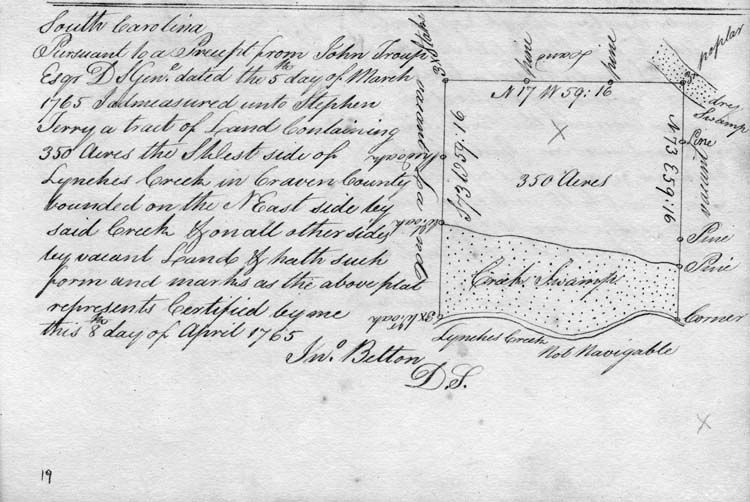 South Carolina
Pursuant to a Precept from John Troup
Esqr D S Genl. dated the 5th day of March
1765 I admeasured unto Stephen
Terry a tract of Land Containing
350 Acres the SWest side of
Lynches Creek in Craven County
bounded on the NEast side by
said Creek & on all other sides
by vacant Land & hath such
form and marks as the above plat
represents Certified by me
this 8th day of April 1765
Jno. Belton
D.S.
3x Stake
vacant Land
pine
Land
pine
poplar
dry Swamp
N 17 W 59:16
S 73 W 59:16
350 Acres
N 73 E 59:16
Line
vacant
Pine
Pine
Corner
Creek Swamp
3x W:oak
Lynches Creek
Not Navigable
19